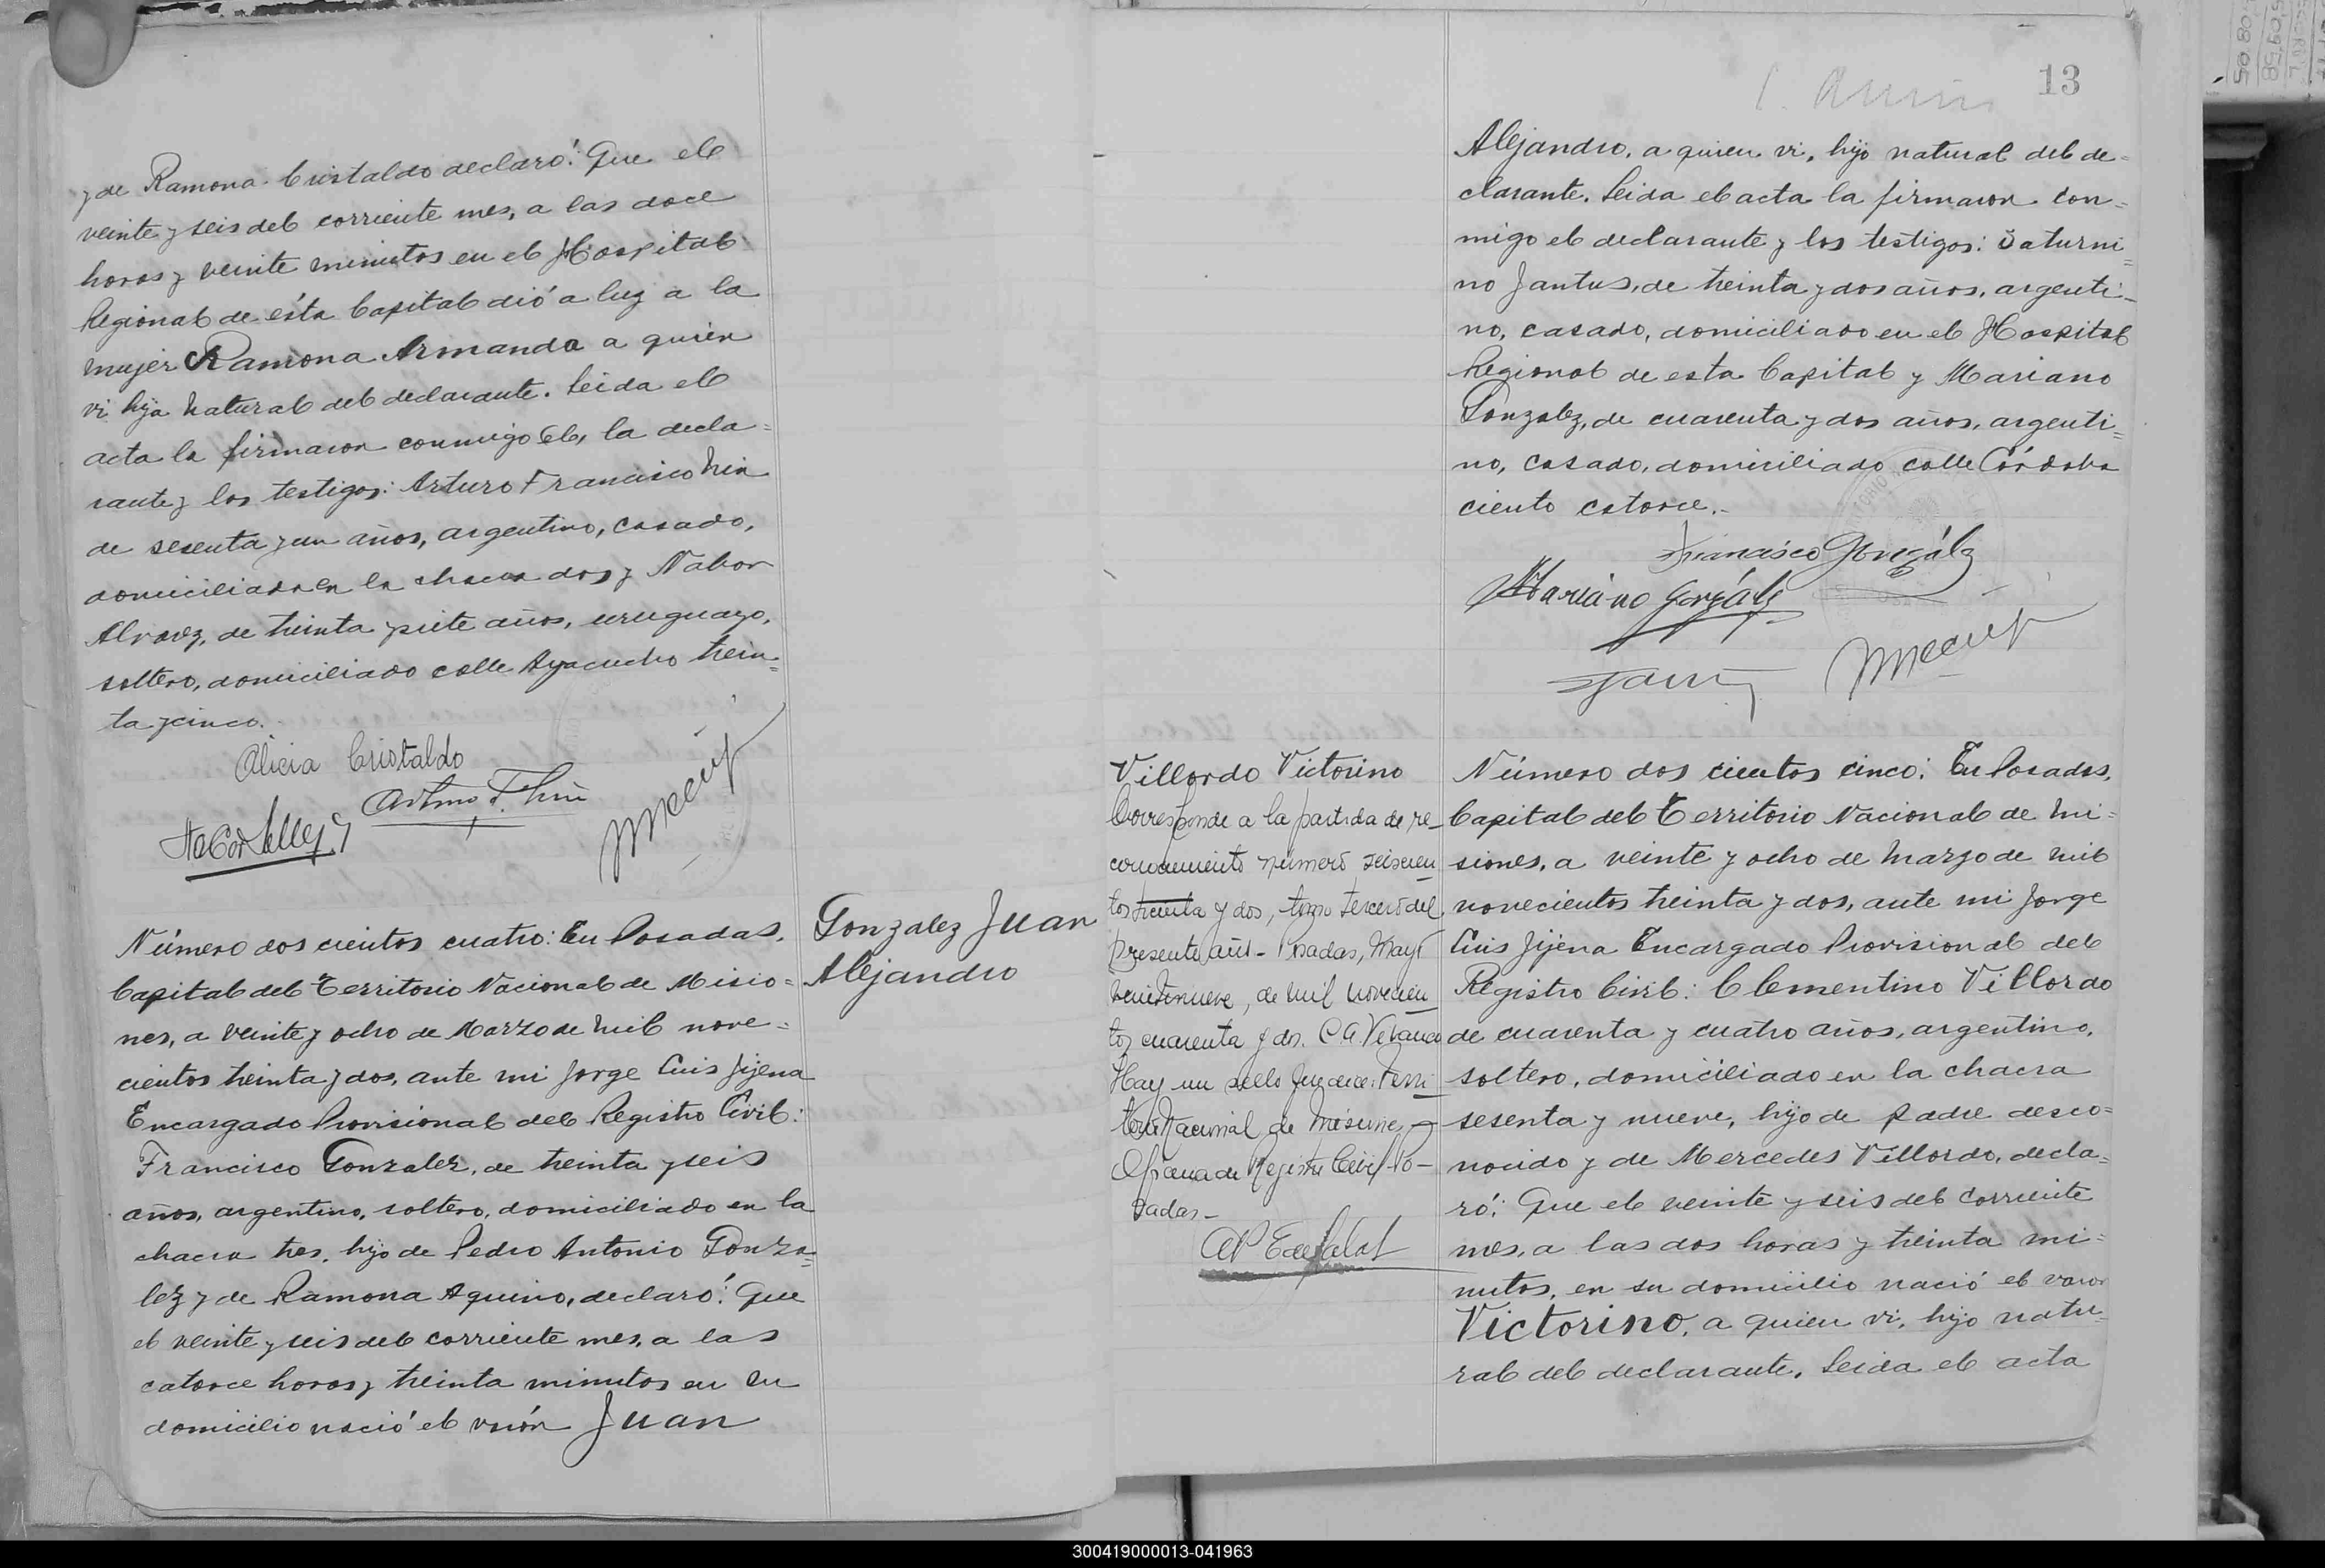 y de Ramona Cristaldo declaró: Que el
veinte y seis del corriente mes, a las doce
horas y veinte minutos en el Hospital
Regional de ésta Capital dió a luz a la
mujer Ramona Armanda a quien
vi hija natural del declarante. Leida el
acta la firmaron conmigo el, la decla=
rante y los testigos: Arturo Francisco
de sesenta y un años, argentino, casado,
domiciliado en la chacra dos y Nabor
Alvarez, de treinta y siete años, uruguayo,
soltero, domiciliado calle Ayacucho trein=
ta y cinco.
Alicia Cristaldo
Arturo F.
Número dos cientos cuatro: En Posadas,
Capital del Territorio Nacional de Misio=
nes, a veinte y ocho de Marzo de mil nove=
cientos treinta y dos, ante mi Jorge Luis Jijena
Encargado Provisional del Registro Civil:
Francisco Gonzalez, de treinta y seis
años, argentino, soltero, domiciliado en la
chacra tres, hijo de Pedro Antonio Gonza=
lez y de Ramona Aquino, declaró: Que
el veinte y seis del corriente mes, a las
catorce horas y treinta minutos en su
domicilio nació el varón Juan
Gonzalez Juan
Alejandro
13
Alejandro, a quien vi, hijo natural del de=
clarante. Leida el acta la firmaron con=
migo el declarante y los testigos: Saturni=
no Jantus, de treinta y dos años, argenti=
no, casado, domiciliado en el Hospital
Regional de esta Capital y Mariano
Gonzalez, de cuarenta y dos años, argenti=
no, casado, domiciliado calle Córdoba
ciento catorce.-
Francisco González
Mariano González
Villordo Victorino
Corresponde a la partida de re-
conocimiento número seiscien
tos treinta y dos, tomo tercero del
presente año - Posadas, Mayo
veintinueve, de mil novecien
tos cuarenta y dos. C.A.
Hay un sello que dice: Terri
torio Nacional de Misiones -
Oficina de Registro Civil - Po-
sadas -
Número dos cientos cinco: En Posadas,
Capital del Territorio Nacional de Mi=
siones, a veinte y ocho de Marzo de mil
novecientos treinta y dos, ante mi Jorge
Luis Jijena Encargado Provisional del
Registro Civil: Clementino Villordo
de cuarenta y cuatro años, argentino,
soltero, domiciliado en la chacra
sesenta y nueve, hijo de padre desco=
nocido y de Mercedes Villordo, decla=
ró: Que el veinte y seis del corriente
mes, a las dos horas y treinta mi=
nutos, en su domicilio nació el varon
Victorino, a quien vi, hijo natu=
ral del declarante. Leida el acta
300419000013-041963